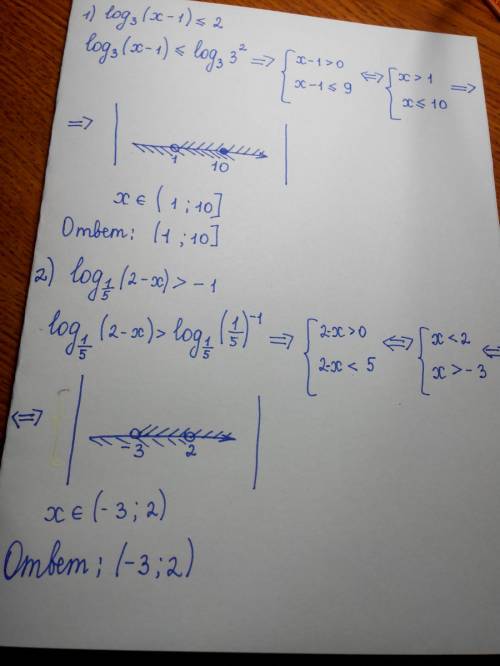 1) log₃(x-1) ≤ 2
log₃(x-1) ≤ log₃3² => { x-1>0 <=> { x>1 =>
x-1≤9 x≤10
=>
1 10
x ∈ (1; 10]
Ответ: (1; 10]
2) log_{1/5}(2-x) > -1
log_{1/5}(2-x) > log_{1/5}(1/5)⁻¹ => { 2-x>0 <=> { x<2 <=>
2-x<5 x>-3
<=>
-3 2
x ∈ (-3; 2)
Ответ: (-3; 2)